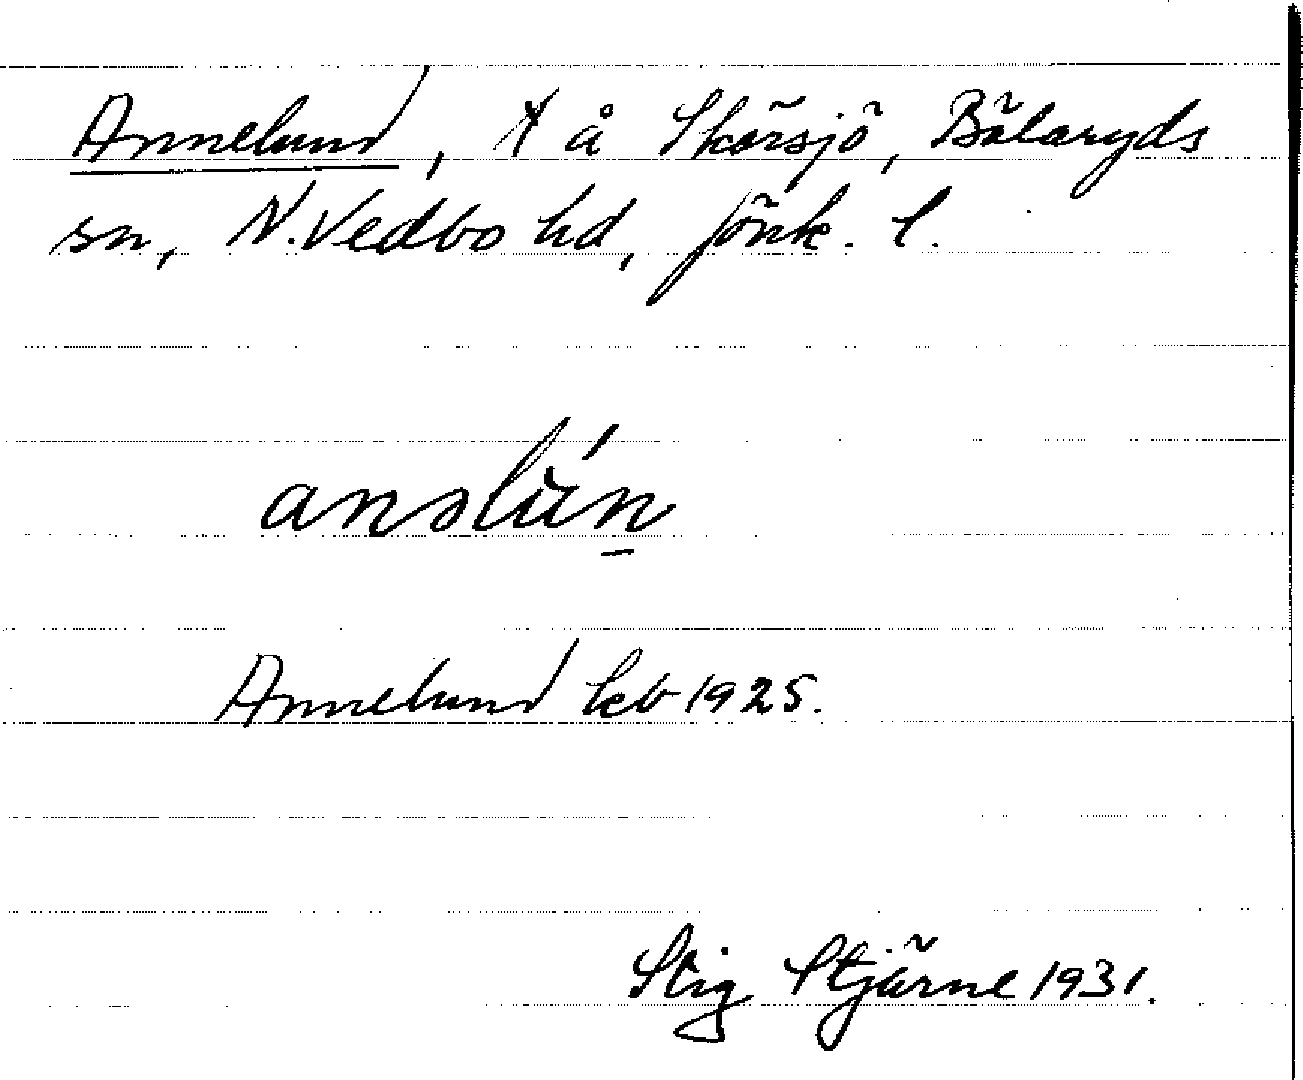 Annelund, X å Skärsjö, Bälaryds
sn, N. Vedbo hd, Jönk. l.
anslún
Annelund keb 1925.
Stig Stjärne 1931.